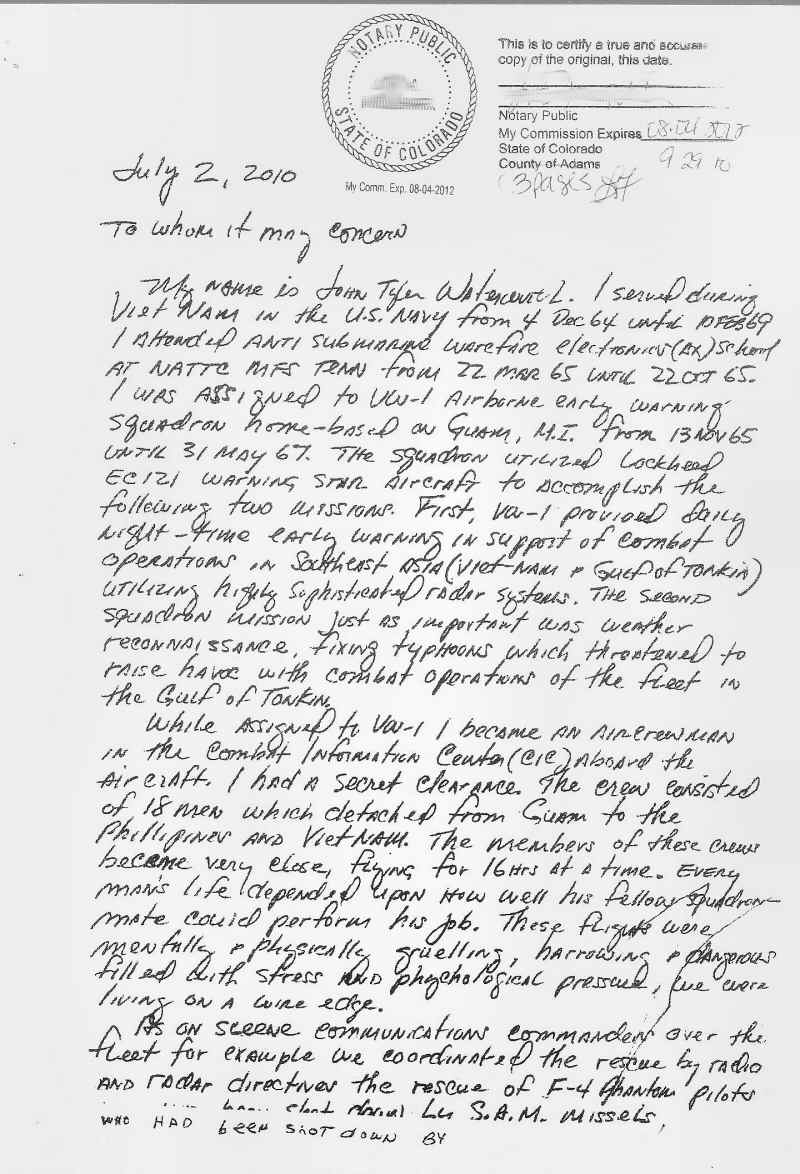 NOTARY PUBLIC
STATE OF COLORADO
My Comm. Exp. 08-04-2012
This is to certify a true and accurate
copy of the original, this date.
Notary Public
My Commission Expires
State of Colorado
County of Adams
9 29 10
3 pages
July 2, 2010
To whom it may concern
My name is John Tyler I served during
Viet Nam in the U.S. Navy from 4 Dec 64 until 10 FEB 69
I attended Anti Submarine warefare electronics (AX) school
AT NATTC MFS TENN from 22 MAR 65 UNTIL 22 OCT 65.
I was assigned to VW-1 Airborne early warning
squadron home-based on Guam, M.I. from 13 NOV 65
UNTIL 31 MAY 67. The squadron utilized Lockheed
EC121 Warning Star Aircraft to accomplish the
following two missions. First, VW-1 provided daily
night-time early warning in support of combat
operations in Southeast Asia (Viet-Nam & Gulf of Tonkin)
utilizing highly sophisticated radar systems. The second
squadron mission just as important was weather
reconnaissance, fixing typhoons which threatened to
raise havoc with combat operations of the fleet in
the Gulf of Tonkin.
While assigned to VW-1 I became an aircrewman
in the Combat Information Center (CIC) aboard the
aircraft. I had a secret clearance. The crew consisted
of 18 men which detached from Guam to the
Phillipines and Viet Nam. The members of these crews
became very close, flying for 16 hrs at a time. Every
man's life depended upon how well his fellow squadron
mate could perform his job. These flights were
mentally & physically gruelling, harrowing & dangerous
filled with stress and phychological pressure, we were
living on a wire edge.
As on scene communications commanders over the
fleet for example we coordinated the rescue by radio
and radar directives the rescue of F-4 Phantom pilots
been shot down by S.A.M. missels,
WHO HAD been shot down BY